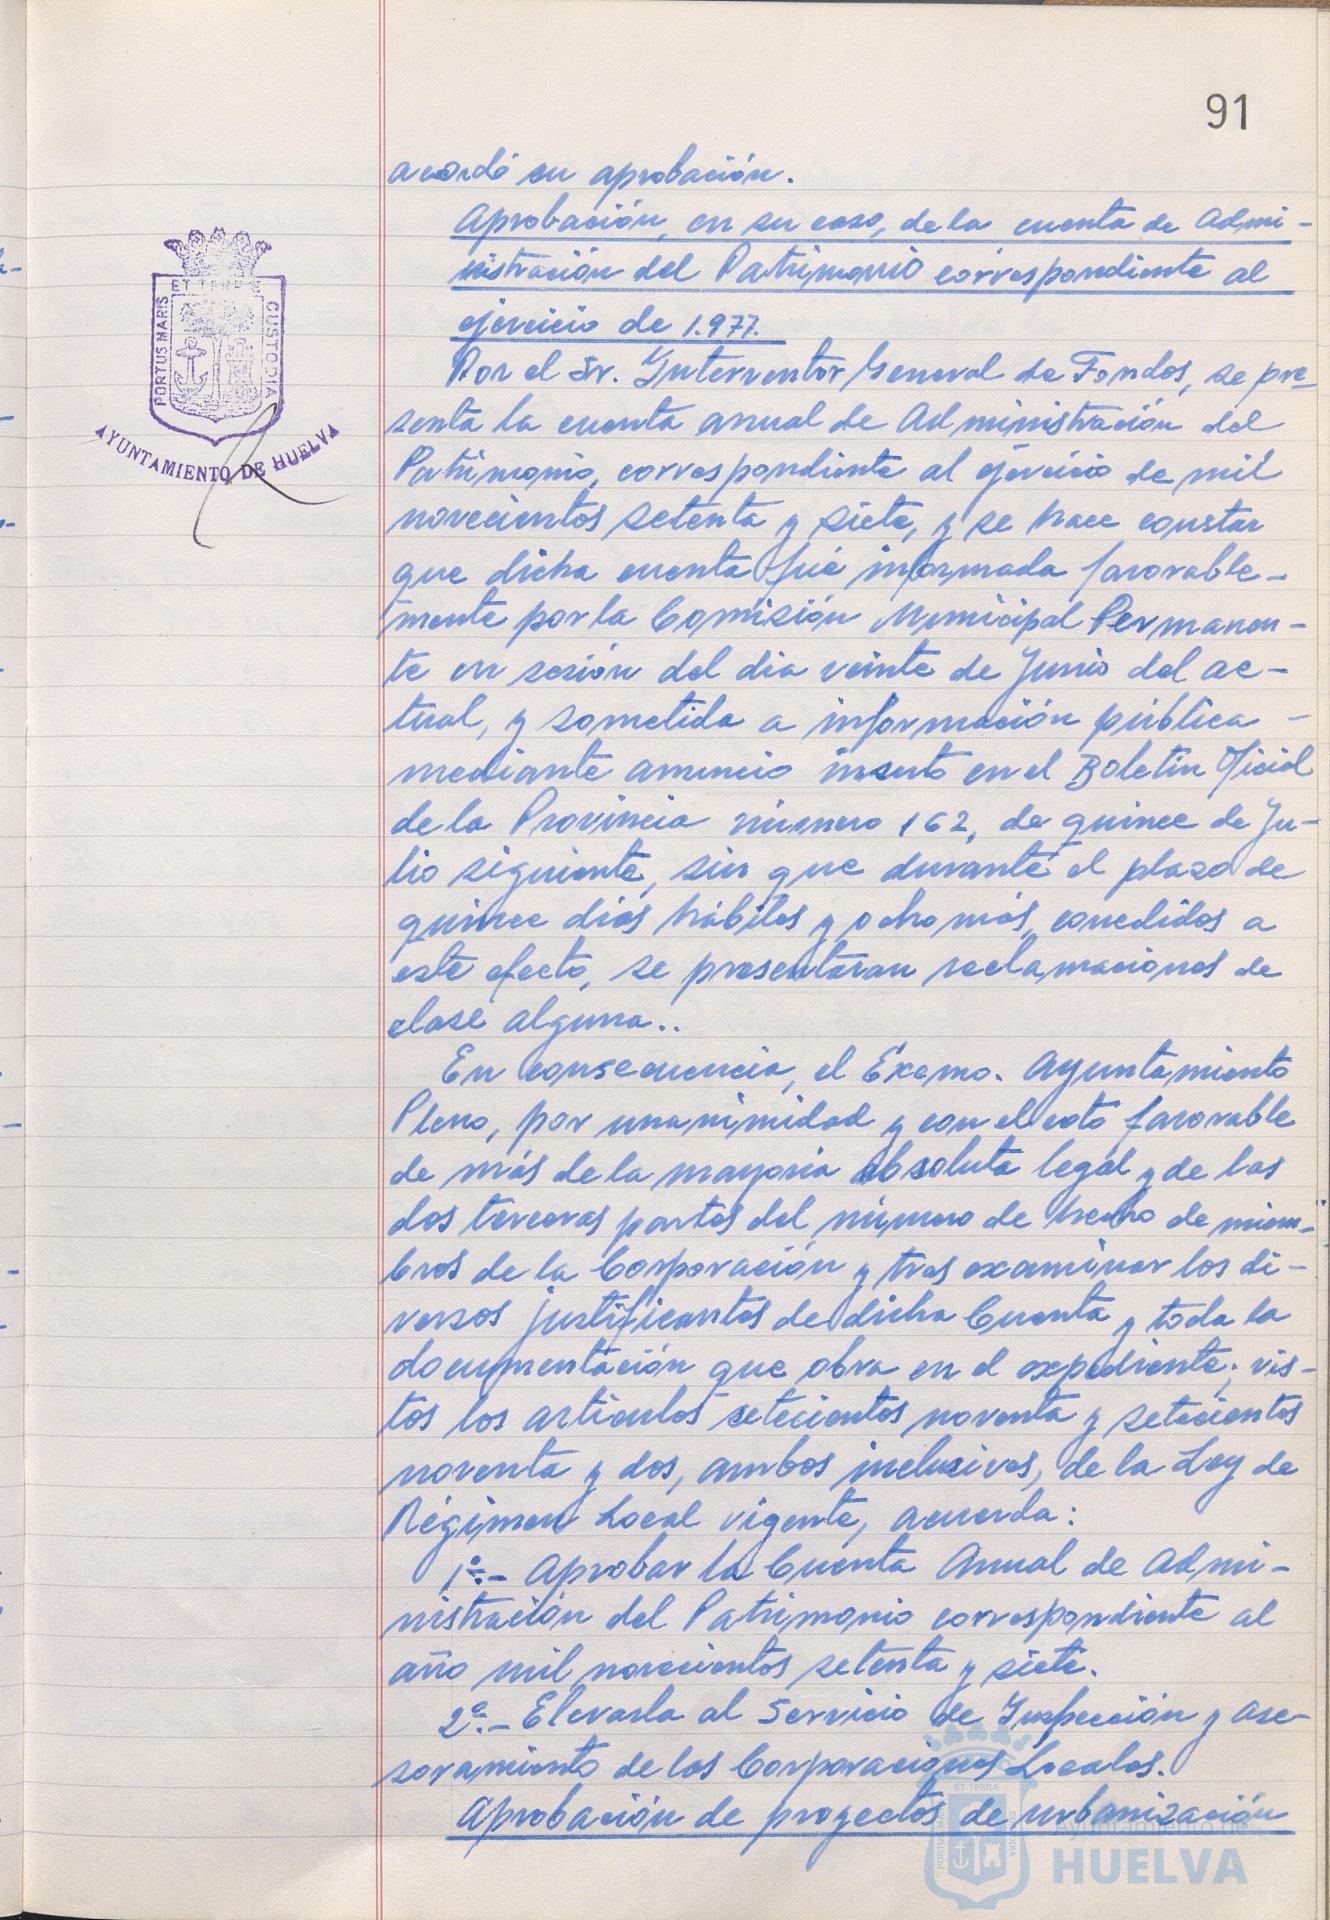 91
acordó su aprobación.
Aprobación, en su caso, de la cuenta de Admi-
nistración del Patrimonio correspondiente al
ejercicio de 1.977.
Por el Sr. Interventor General de Fondos, se pre-
senta la cuenta anual de Administración del
Patrimonio, correspondiente al ejercicio de mil
novecientos setenta y siete, y se hace constar
que dicha cuenta fué informada favorable-
mente por la Comisión Municipal Permanen-
te en sesión del dia veinte de Junio del ac-
tual, y sometida a información pública -
mediante anuncio inserto en el Boletín Oficial
de la Provincia número 162, de quince de Ju-
lio siguiente, sin que durante el plazo de
quince días hábiles y ocho más, concedidos a
este efecto, se presentaran reclamaciones de
clase alguna..
En consecuencia, el Excmo. Ayuntamiento
Pleno, por unanimidad y con el voto favorable
de más de la mayoria absoluta legal y de las
dos terceras partes del número de hecho de miem-
bros de la Corporación y tras examinar los di-
versos justificantes de dicha Cuenta y toda la
documentación que obra en el expediente; vis-
tos los artículos setecientos noventa y setecientos
noventa y dos, ambos inclusives, de la Ley de
Régimen Local vigente, acuerda:
1º.- Aprobar la Cuenta Anual de Admi-
nistración del Patrimonio correspondiente al
año mil novecientos setenta y siete.
2º.- Elevarla al Servicio de Inspección y ase-
soramiento de las Corporaciones Locales.
Aprobación de proyectos de urbanización
PORTUS MARIS
ET TERRE
CUSTODIA
AYUNTAMIENTO DE HUELVA
ET TERRÆ
Ayuntamiento de
HUELVA